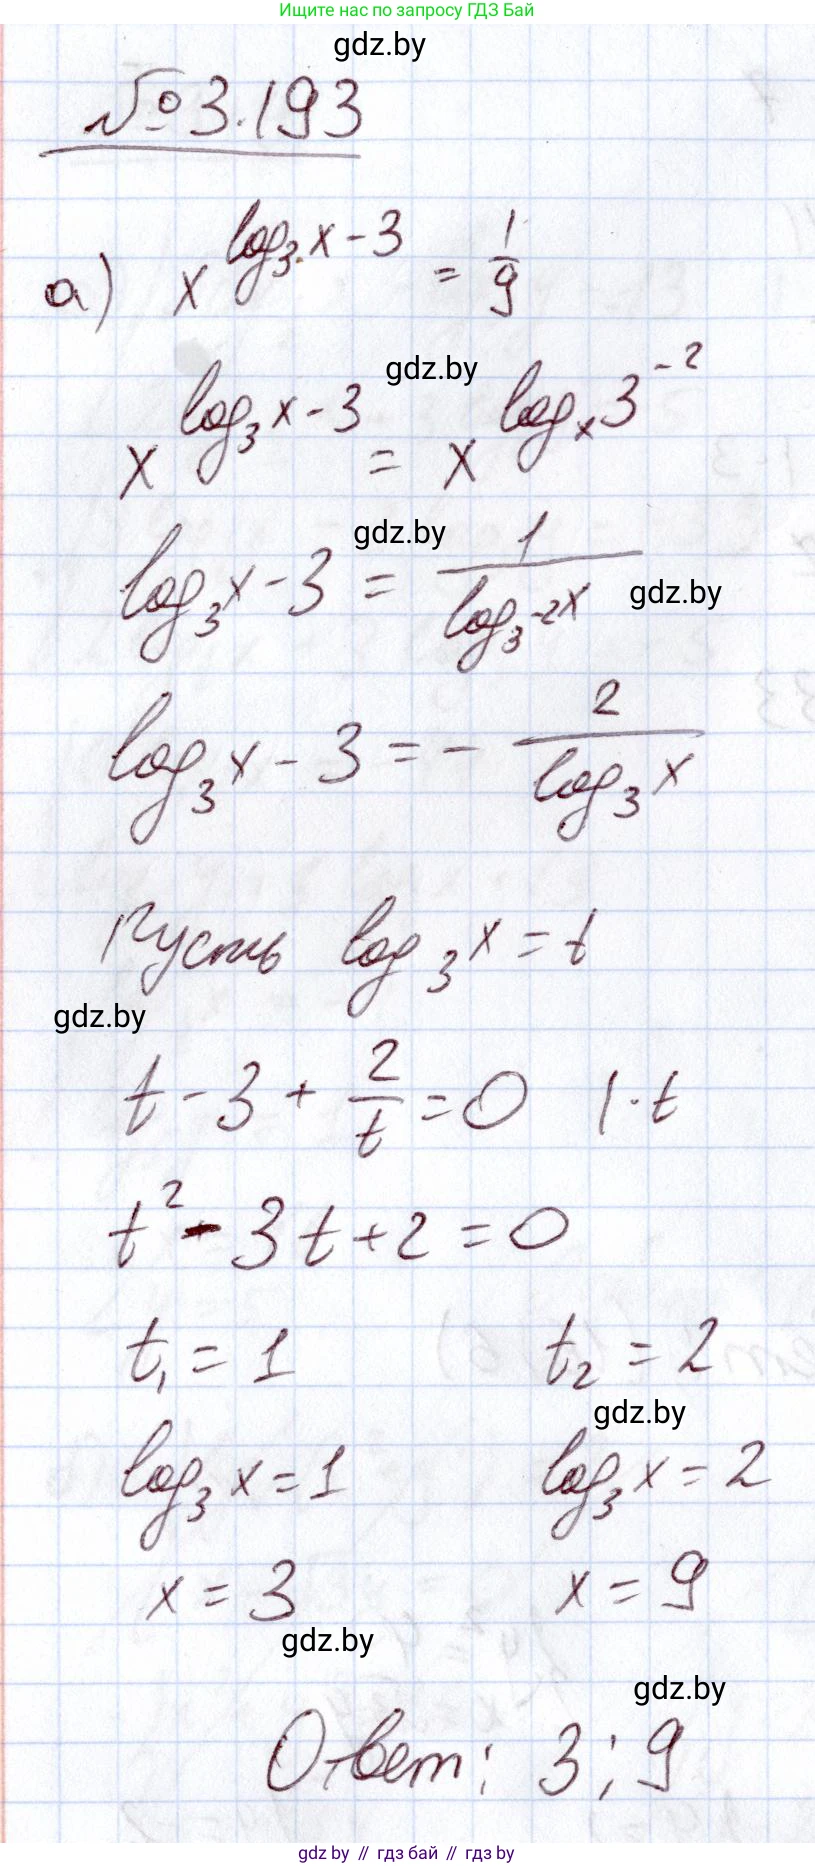 Ищите нас по запросу ГДЗ Бай
gdz.by
№3.193
а) x^(log₃x-3) = 1/9
gdz.by
x^(log₃x-3) = x^(logₓ3⁻²)
gdz.by
log₃x-3 = 1/(log₃⁻²x)
gdz.by
log₃x-3 = - 2/(log₃x)
Пусть log₃x = t
gdz.by
t-3+2/t=0 |·t
t²-3t+2=0
t₁=1 t₂=2
gdz.by
log₃x=1 log₃x=2
x=3 x=9
gdz.by
gdz.by
Ответ: 3; 9
gdz by // гдз бай // gdz.by